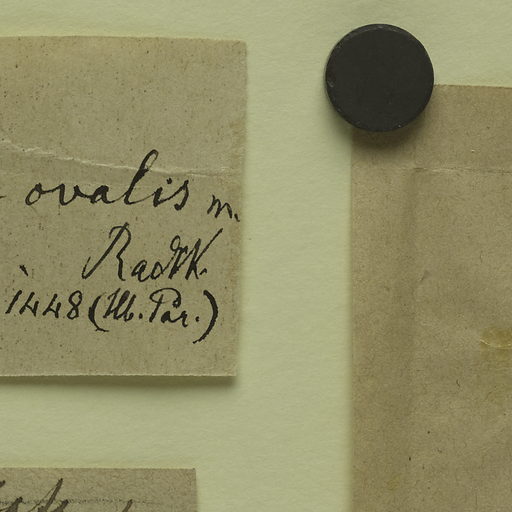 ovalis m.
Radlk.
1448 (Hb. Par.)